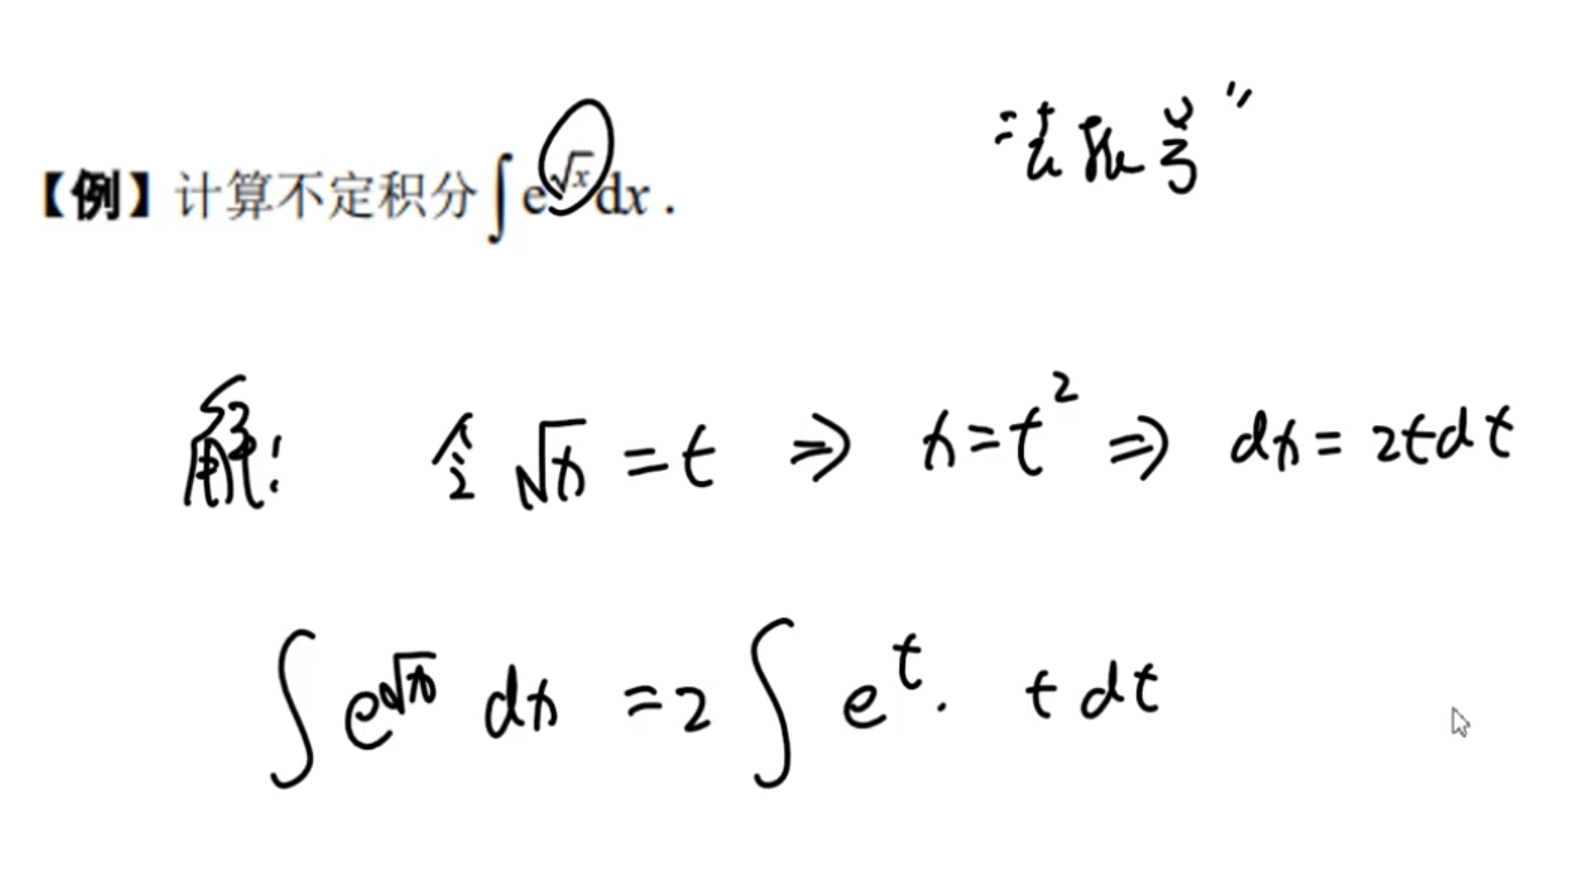 【例】计算不定积分∫e^√x dx.
"去根号"
解: 令√x = t ⇒ x = t² ⇒ dx = 2tdt
∫e^√x dx = 2∫e^t · t dt